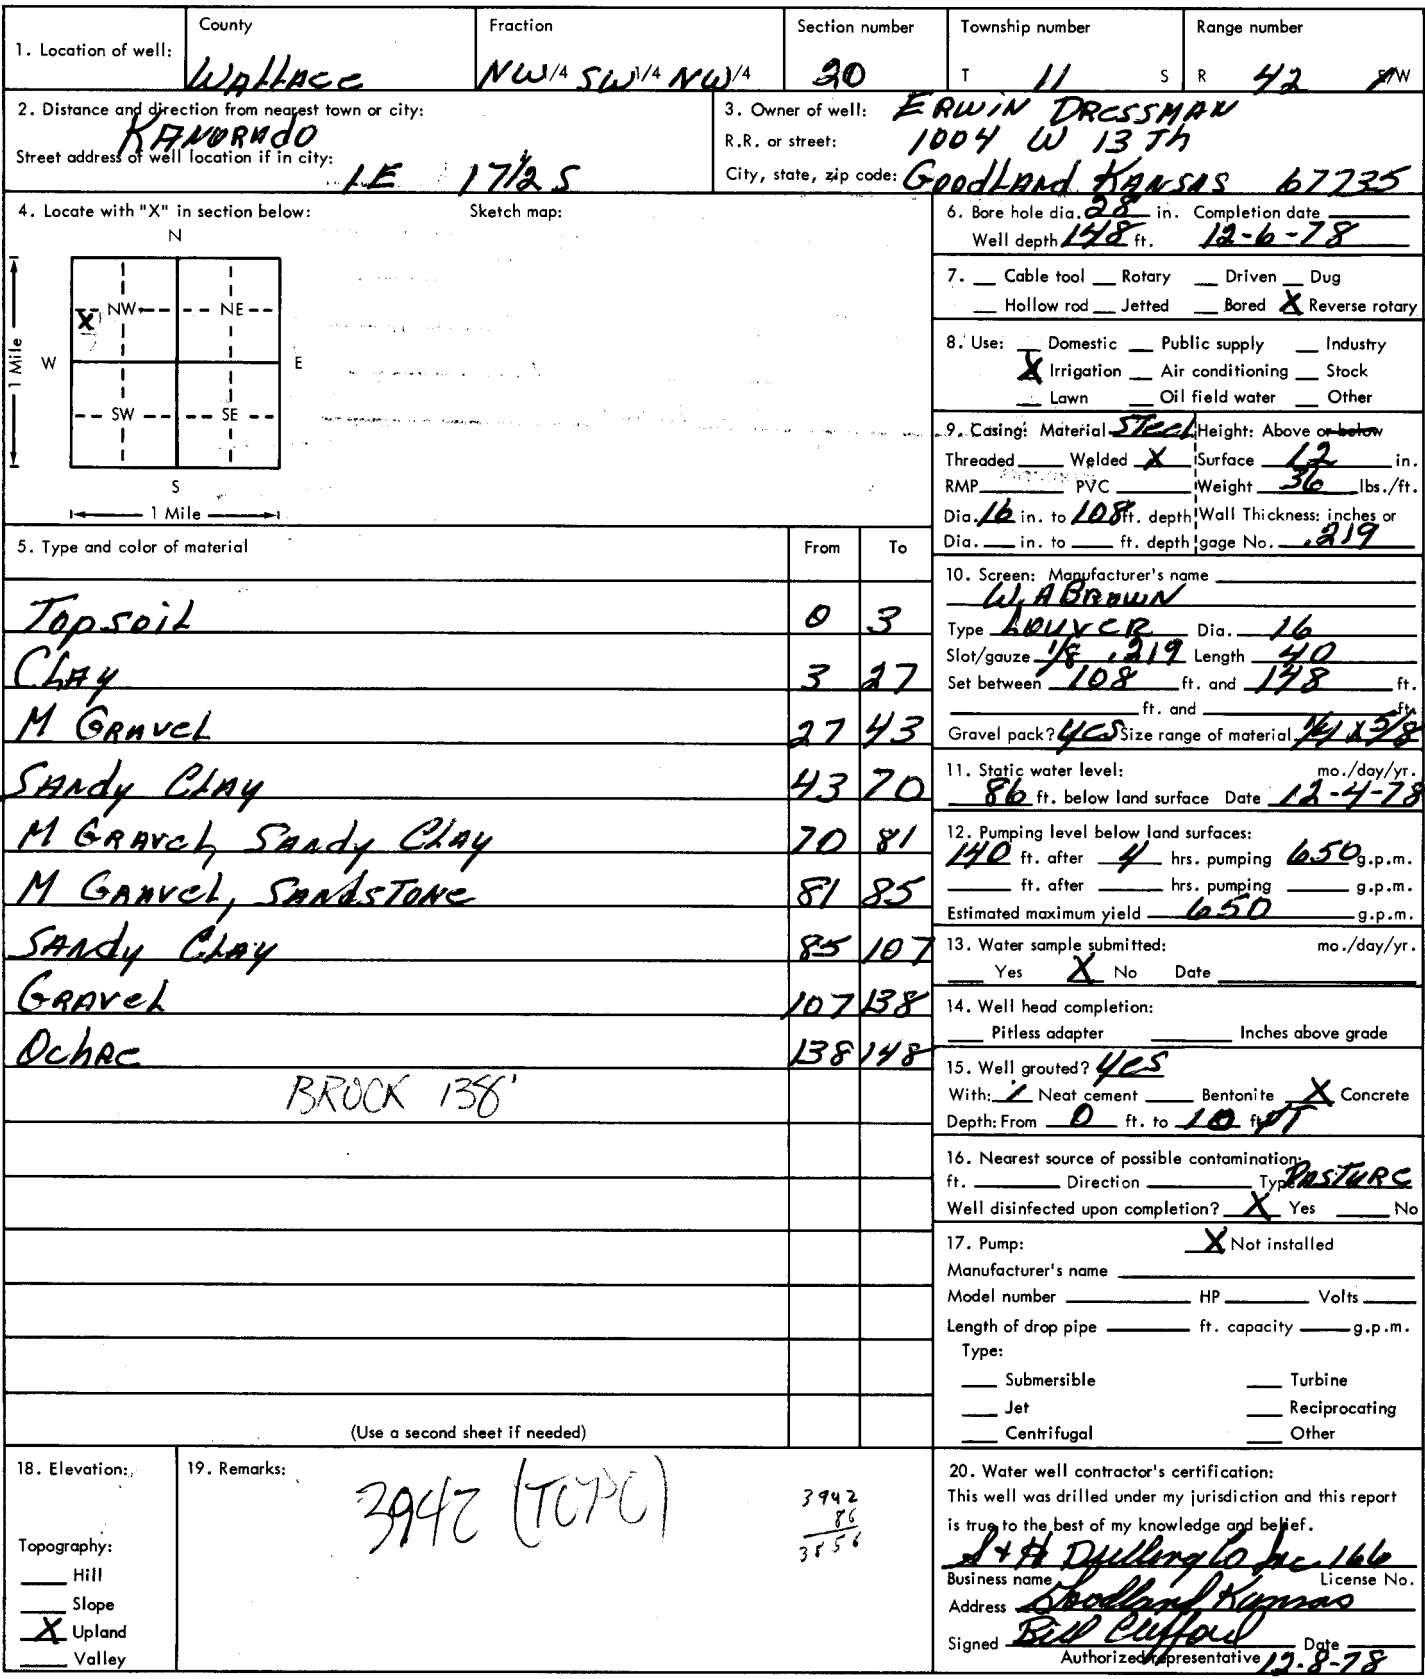 1. Location of well:
County
Wallace
Fraction
NW 1/4 SW 1/4 NW 1/4
Section number
20
Township number
T 11 S
Range number
R 42 E/W
2. Distance and direction from nearest town or city:
Kanorado
Street address of well location if in city:
1E 17 1/2 S
3. Owner of well: Erwin Dressman
R.R. or street: 1004 W 13 Th
City, state, zip code: Goodland Kansas 67735
4. Locate with "X" in section below:
Sketch map:
N
NW NE
X
W E
1 Mile
SW SE
S
1 Mile
5. Type and color of material From To
Topsoil 0 3
Clay 3 27
M Gravel 27 43
Sandy Clay 43 70
M Gravel, Sandy Clay 70 81
M Gravel, Sandstone 81 85
Sandy Clay 85 107
Gravel 107 138
Ochre 138 148
BROCK 138'
(Use a second sheet if needed)
6. Bore hole dia. 28 in. Completion date
Well depth 148 ft. 12-6-78
7. Cable tool Rotary Driven Dug
Hollow rod Jetted Bored X Reverse rotary
8. Use: Domestic Public supply Industry
X Irrigation Air conditioning Stock
Lawn Oil field water Other
9. Casing: Material Steel Height: Above or below
Threaded Welded X Surface 12 in.
RMP PVC Weight 36 lbs./ft.
Dia. 16 in. to 108 ft. depth Wall Thickness: inches or
Dia. in. to ft. depth gage No. .219
10. Screen: Manufacturer's name
W.A Brown
Type Louver Dia. 16
Slot/gauze 1/8 .219 Length 40
Set between 108 ft. and 148 ft.
ft. and ft.
Gravel pack? yes Size range of material 1/4 x 5/8
11. Static water level: mo./day/yr.
86 ft. below land surface Date 12-4-78
12. Pumping level below land surfaces:
140 ft. after 4 hrs. pumping 650 g.p.m.
ft. after hrs. pumping g.p.m.
Estimated maximum yield 650 g.p.m.
13. Water sample submitted: mo./day/yr.
Yes X No Date
14. Well head completion:
Pitless adapter Inches above grade
15. Well grouted? yes
With: Neat cement Bentonite X Concrete
Depth: From 0 ft. to 10 ft.
16. Nearest source of possible contamination:
ft. Direction Type Pasture
Well disinfected upon completion? X Yes No
17. Pump: X Not installed
Manufacturer's name
Model number HP Volts
Length of drop pipe ft. capacity g.p.m.
Type:
Submersible Turbine
Jet Reciprocating
Centrifugal Other
18. Elevation:
Topography:
Hill
Slope
X Upland
Valley
19. Remarks:
3942 (TOPO)
3942
86
3856
20. Water well contractor's certification:
This well was drilled under my jurisdiction and this report
is true to the best of my knowledge and belief.
S + H Drilling Co Inc. 166
Business name License No.
Address Goodland Kansas
Signed Bill Clifford Date
Authorized representative 12-8-78